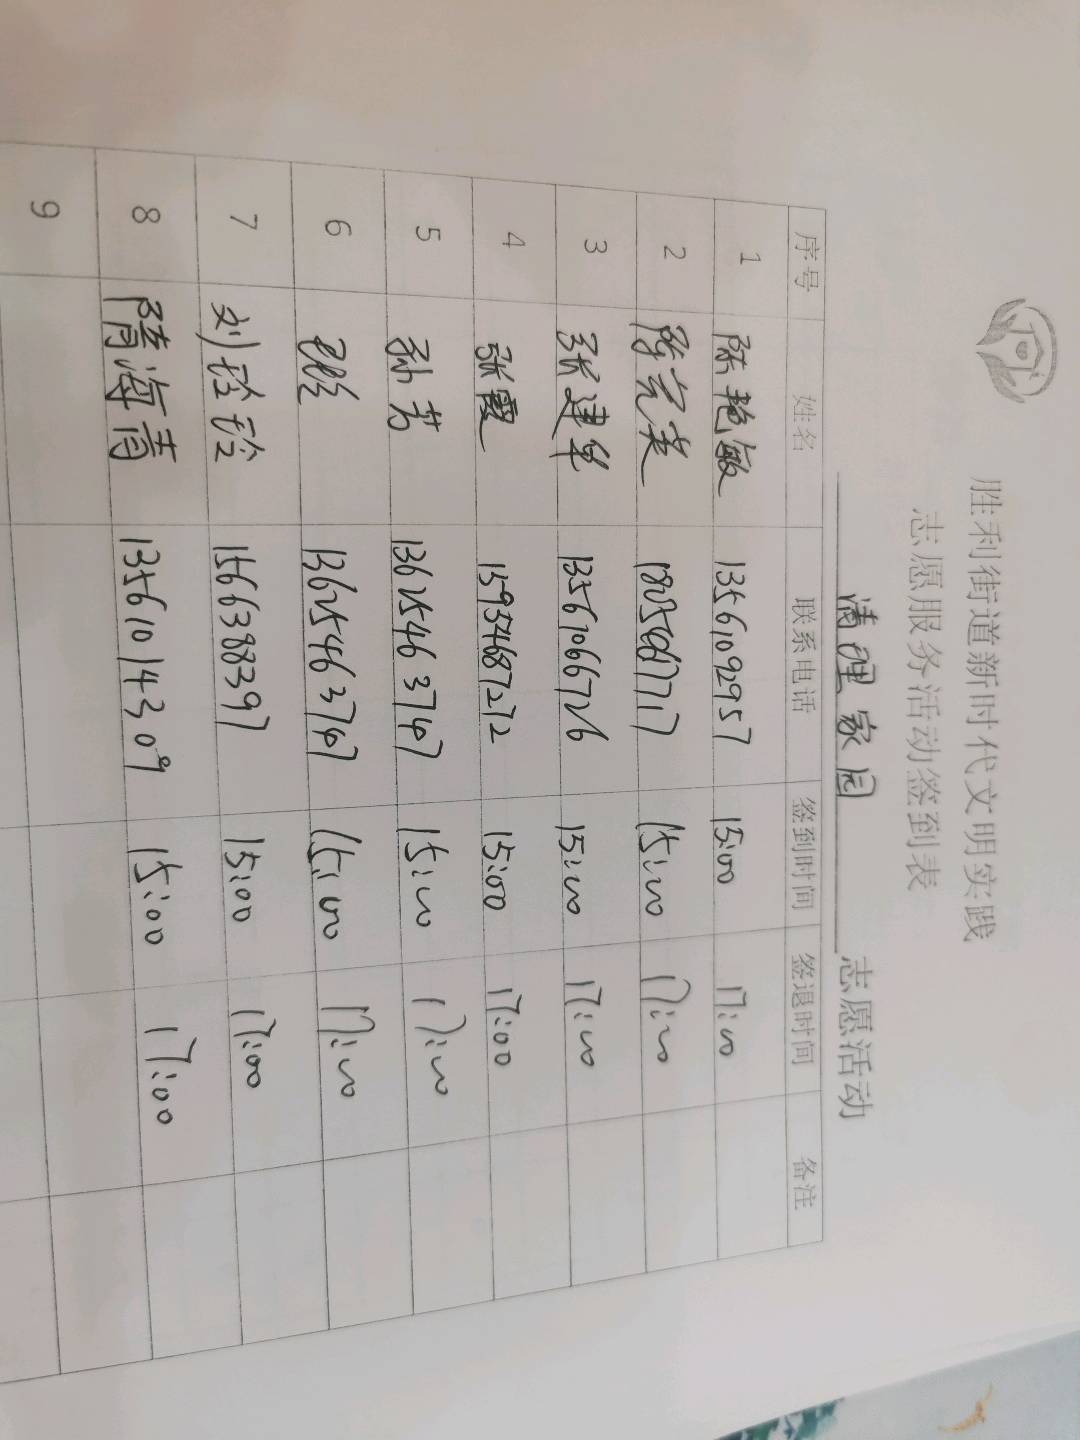 胜利街道新时代文明实践
志愿服务活动签到表
清理家园 志愿活动
序号 姓名 联系电话 签到时间 签退时间 备注
1 陈艳敏 13561092957 15:00 17:00
2 15:00 17:00
3 张建华 13561066726 15:00 17:00
4 张霞 15934687272 15:00 17:00
5 孙芳 13625463747 15:00 17:00
6 13625463747 15:00 17:00
7 刘玲玲 15663883397 15:00 17:00
8 隋海青 13561014309 15:00 17:00
9